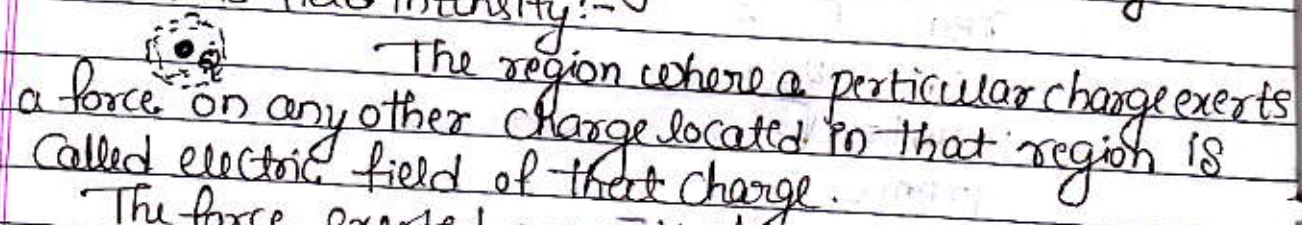 intensity:-
The region where a perticular charge exerts
a force on any other charge located in that region is
Called electric field of that charge.
The force